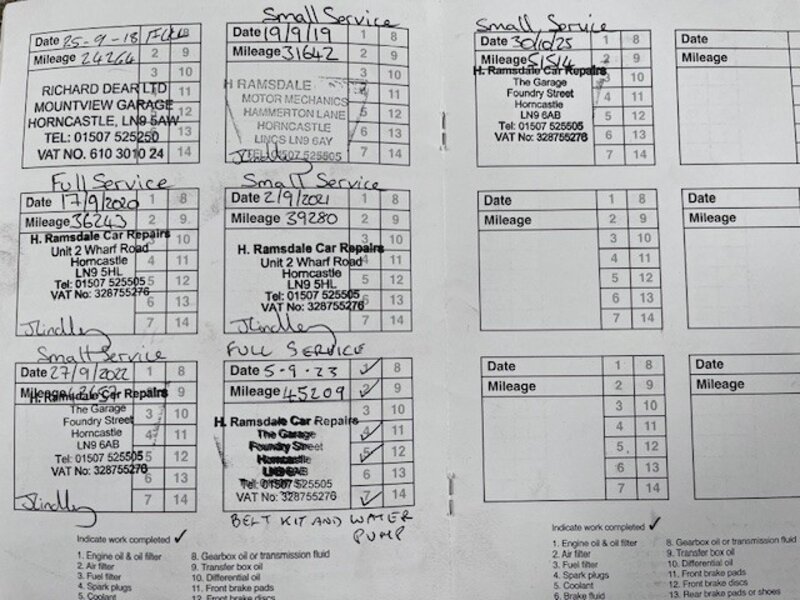 Date 25-9-18 FULL 1 8
Mileage 24264 2 9
3 10
RICHARD DEAR LTD 11
MOUNTVIEW GARAGE
HORNCASTLE, LN9 5AW 12
TEL: 01507 525250 13
VAT NO. 610 3010 24 14
Small Service
Date 19/9/19 1 8
Mileage 31642 2 9
3 10
H RAMSDALE
MOTOR MECHANICS 4 11
HAMMERTON LANE 5 12
HORNCASTLE 6 13
LINCS LN9 6AY
TEL: 01507 525505 7 14
JLindley
Small Service
Date 30/10/25 1 8
Mileage 51514 2 9
H. Ramsdale Car Repairs 3 10
The Garage
Foundry Street 4 11
Horncastle 5 12
LN9 6AB
Tel: 01507 525505 6 13
VAT No: 328755276 7 14
Date
Mileage
Full Service
Date 17/9/2020 1 8
Mileage 36243 2 9
H. Ramsdale Car Repairs 3 10
Unit 2 Wharf Road
Horncastle 4 11
LN9 5HL
Tel: 01507 525505 5 12
VAT No: 328755276 6 13
JLindley 7 14
Small Service
Date 2/9/2021 1 8
Mileage 39280 2 9
H. Ramsdale Car Repairs 3 10
Unit 2 Wharf Road
Horncastle 4 11
LN9 5HL 5 12
Tel: 01507 525505
VAT No: 328755276 6 13
JLindley 7 14
Date 1 8
Mileage 2 9
3 10
4 11
5 12
6 13
7 14
Date
Mileage
Small Service
Date 27/9/2022 1 8
Mileage 9
H. Ramsdale Car Repairs
The Garage 3 10
Foundry Street
Horncastle 4 11
LN9 6AB
Tel: 01507 525505 5 12
VAT No: 328755276 6 13
JLindley 7 14
FULL SERVICE
Date 5-9-23 1 8
Mileage 45209 2 9
3 10
H. Ramsdale Car Repairs
The Garage 4 11
Foundry Street
Horncastle 5 12
LN9 6AB 6 13
Tel: 01507 525505
VAT No: 328755276 7 14
BELT KIT AND WATER
PUMP
Date 1 8
Mileage 2 9
3 10
4 11
5 12
6 13
7 14
Date
Mileage
Indicate work completed ✓
1. Engine oil & oil filter
2. Air filter
3. Fuel filter
4. Spark plugs
5. Coolant
8. Gearbox oil or transmission fluid
9. Transfer box oil
10. Differential oil
11. Front brake pads
12. Front brake discs
Indicate work completed ✓
1. Engine oil & oil filter
2. Air filter
3. Fuel filter
4. Spark plugs
5. Coolant
6. Brake fluid
8. Gearbox oil or transmission fluid
9. Transfer box oil
10. Differential oil
11. Front brake pads
12. Front brake discs
13. Rear brake pads or shoes